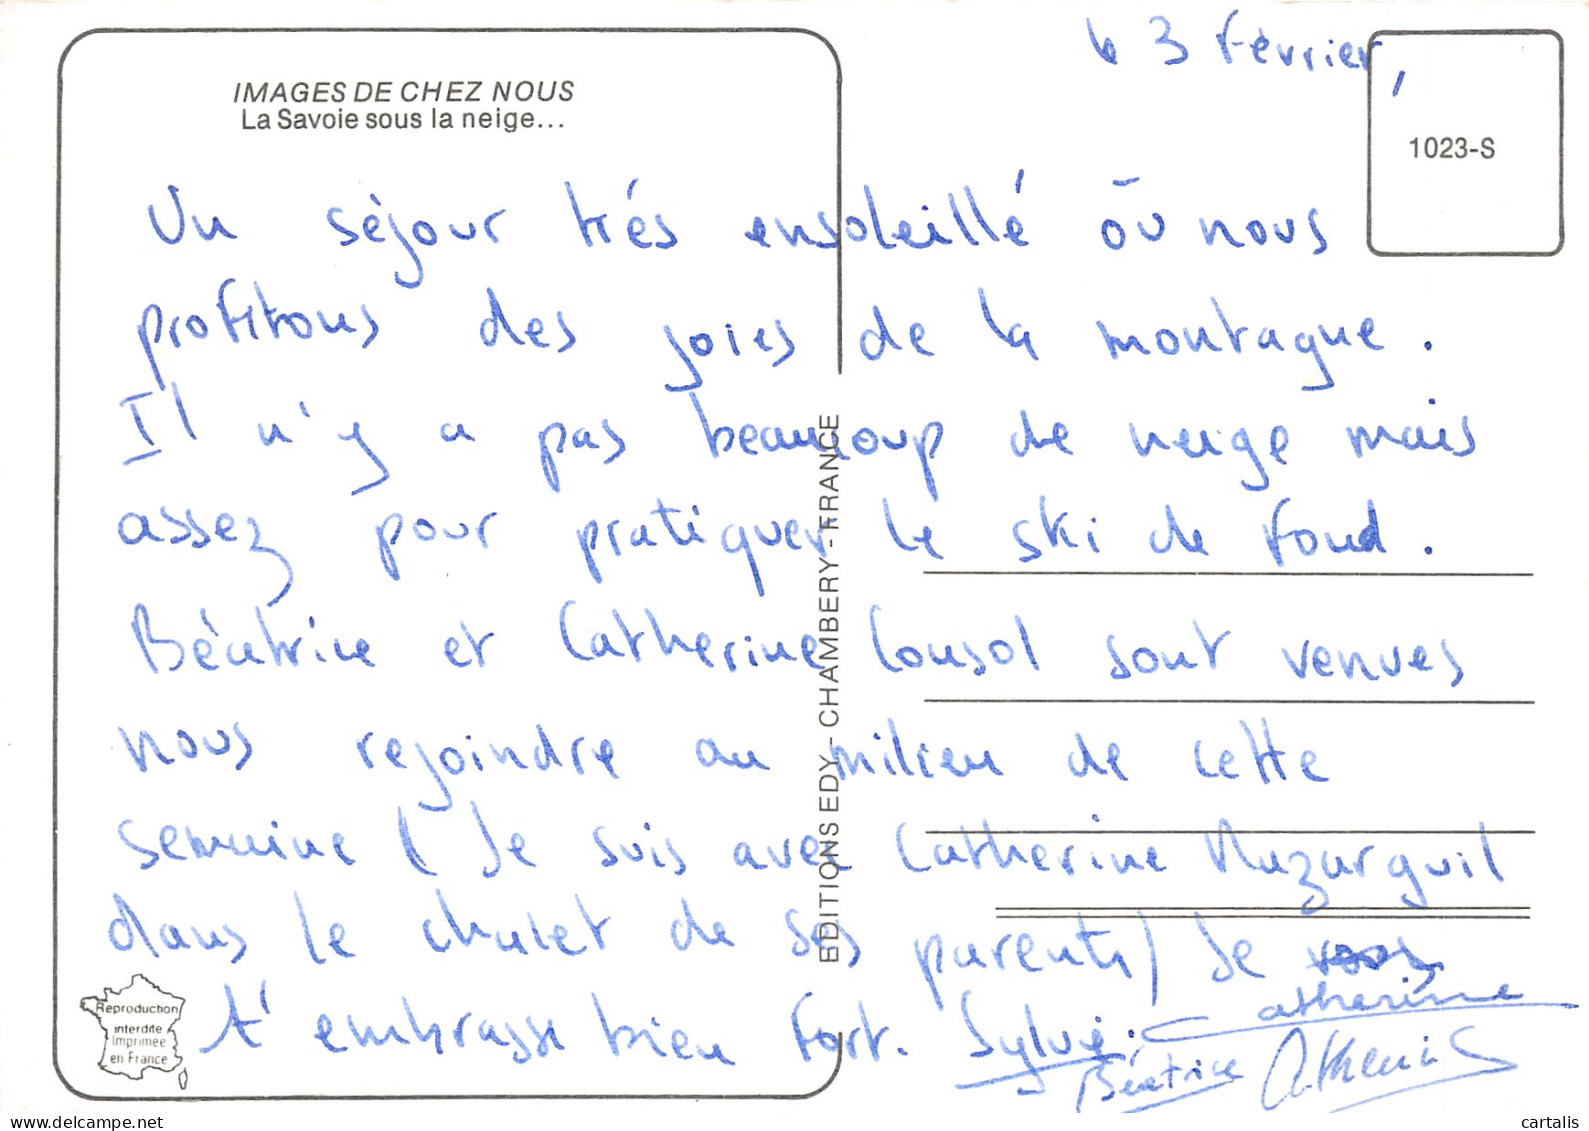 le 3 février,
IMAGES DE CHEZ NOUS
La Savoie sous la neige...
1023-S
Un séjour trés ensoleillé où nous
profitons des joies de la montagne.
Il n'y a pas beaucoup de neige mais
assez pour pratiquer le ski de fond.
Béatrice et Catherine Consol sont venues
nous rejoindre au milieu de cette
semaine ( Je suis avec Catherine Mazarguil
dans le chalet de ses parents) Je
t'embrasse bien fort. Sylvie.
Catherine
Béatrice Catherine
EDITIONS EDY - CHAMBERY - FRANCE
Reproduction
interdite
Imprimée
en France
www.delcampe.net
cartalis